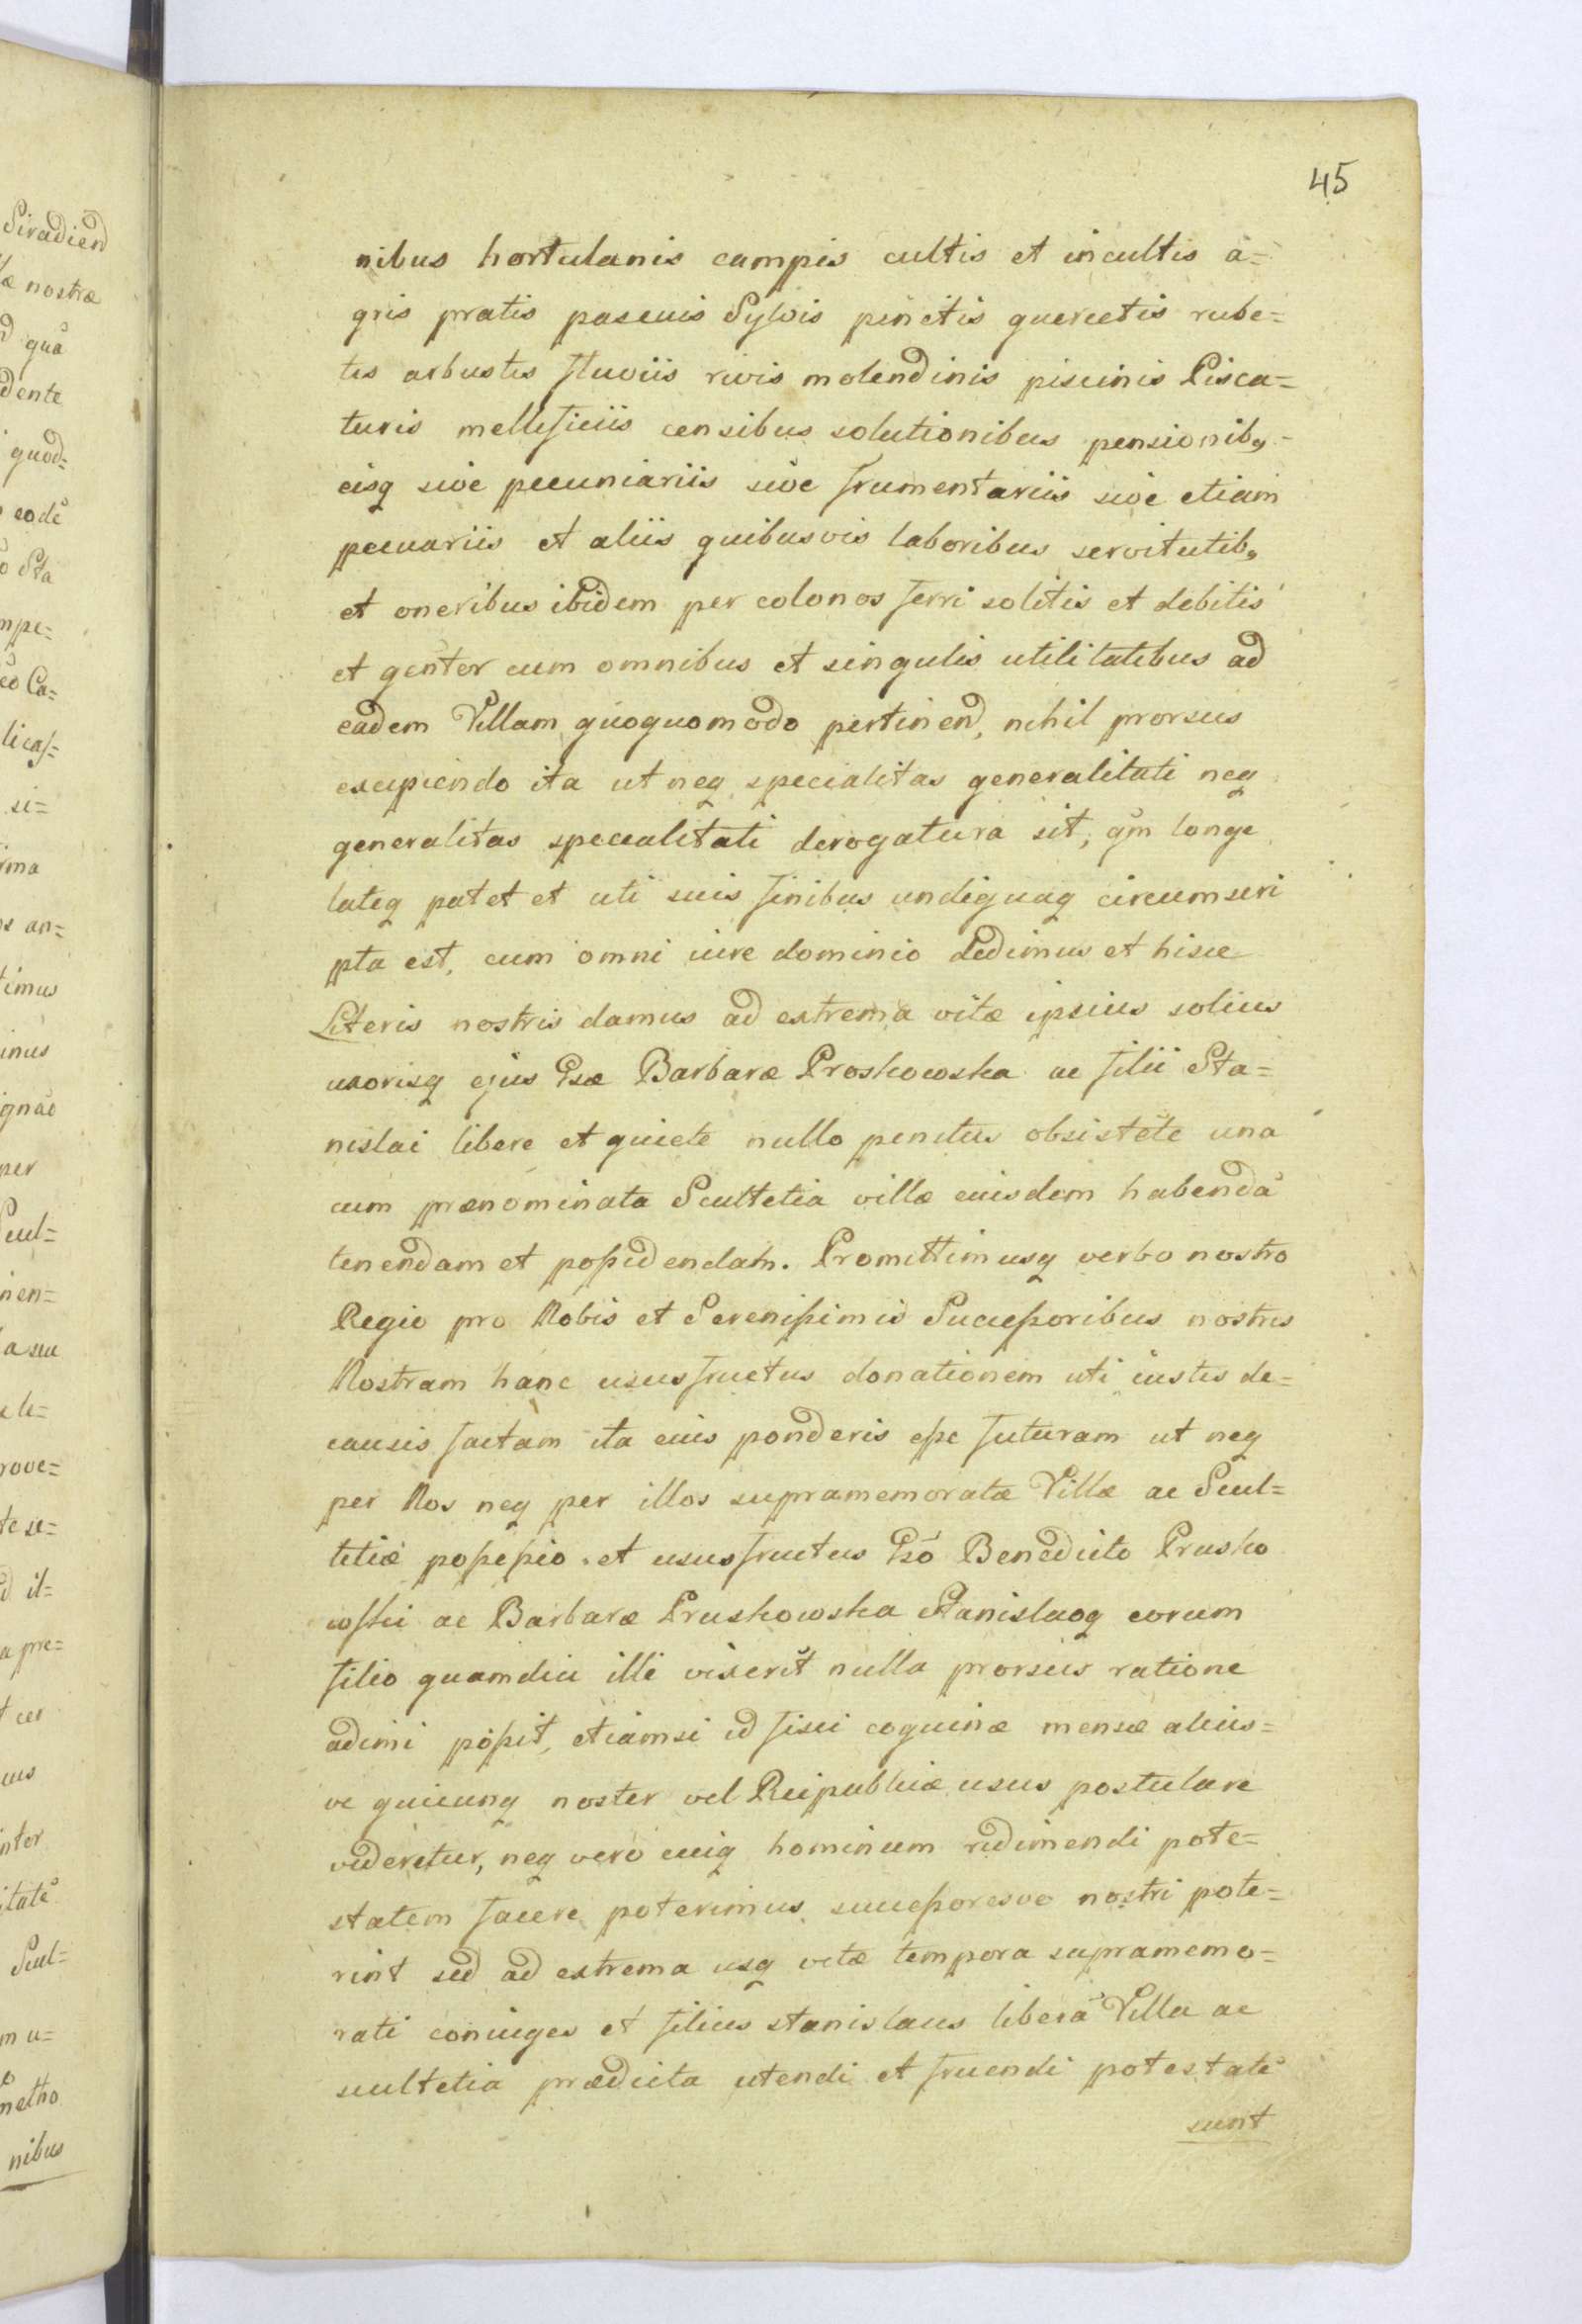 45
nibus hortulanis campis cultis et incultis a=
gris pratis pascuis Sylvis pinetis quercetis rube=
tis arbustis fluviis rivis molendinis piscinis Pisca=
turis mellificiis censibus solutionibus pensionibq
eisq sive pecuniariis sive frumentariis sive etiam
pecuariis et aliis quibusvis laboribus servitutibq
et oneribus ibidem per colonos ferri solitis et debitis
et genter cum omnibus et singulis utilitatibus ad
eadem Villam quoquomodo pertinend, nihil prorsus
excipiendo ita ut neq specialitas generalitati neq
generalitas specialitati derogatura sit, qm longe
lateq patet et uti suis finibus undiquaq circumscri
pta est, cum omni iure dominio dedimus et hisce
Literis nostris damus ad extrema vitæ ipsius solius
uxorisq ejus Gsæ Barbaræ Proskowska ac filii Sta=
nislai libere et quiete nullo penitus obsistēte una
cum prænominata Scultetia villæ eiusdem habendā
tenendam et possidendam. Promittimusq verbo nostro
Regio pro Nobis et Serenissimis Successoribus nostris
Nostram hanc ususfructus donationem uti iustis de=
causis factam ita eius ponderis esse futuram ut neq
per Nos neq per illos supramemoratæ Villæ ac Scul=
tetiæ possessio et ususfructus Gsō Benedicto Prusko
wski ac Barbaræ Pruskowska Stanislaoq eorum
filio quamdiu illi vixerīt nulla prorsus ratione
adimi possit, etiamsi id fisci coquinæ mensæ alius=
ve quicunq noster vel Reipublicæ usus postulare
videretur, neq vero cuiq hominum redimendi pote=
statem facere poterimus successoresve nostri pote=
rint sed ad extrema usq vitæ tempora supramemo=
rati coniuges et filius stanislaus liberā Villa ac
scultetia prædicta utendi et fruendi potestatē
sunt
Siradien
æ nostræ
quā
dente
quod=
eodē
Sta
mpe=
Ca=
si=
an=
timus
inus
per
Scul=
nen=
le=
rove=
il=
a pre=
itatē
Scul=
netho
nibus